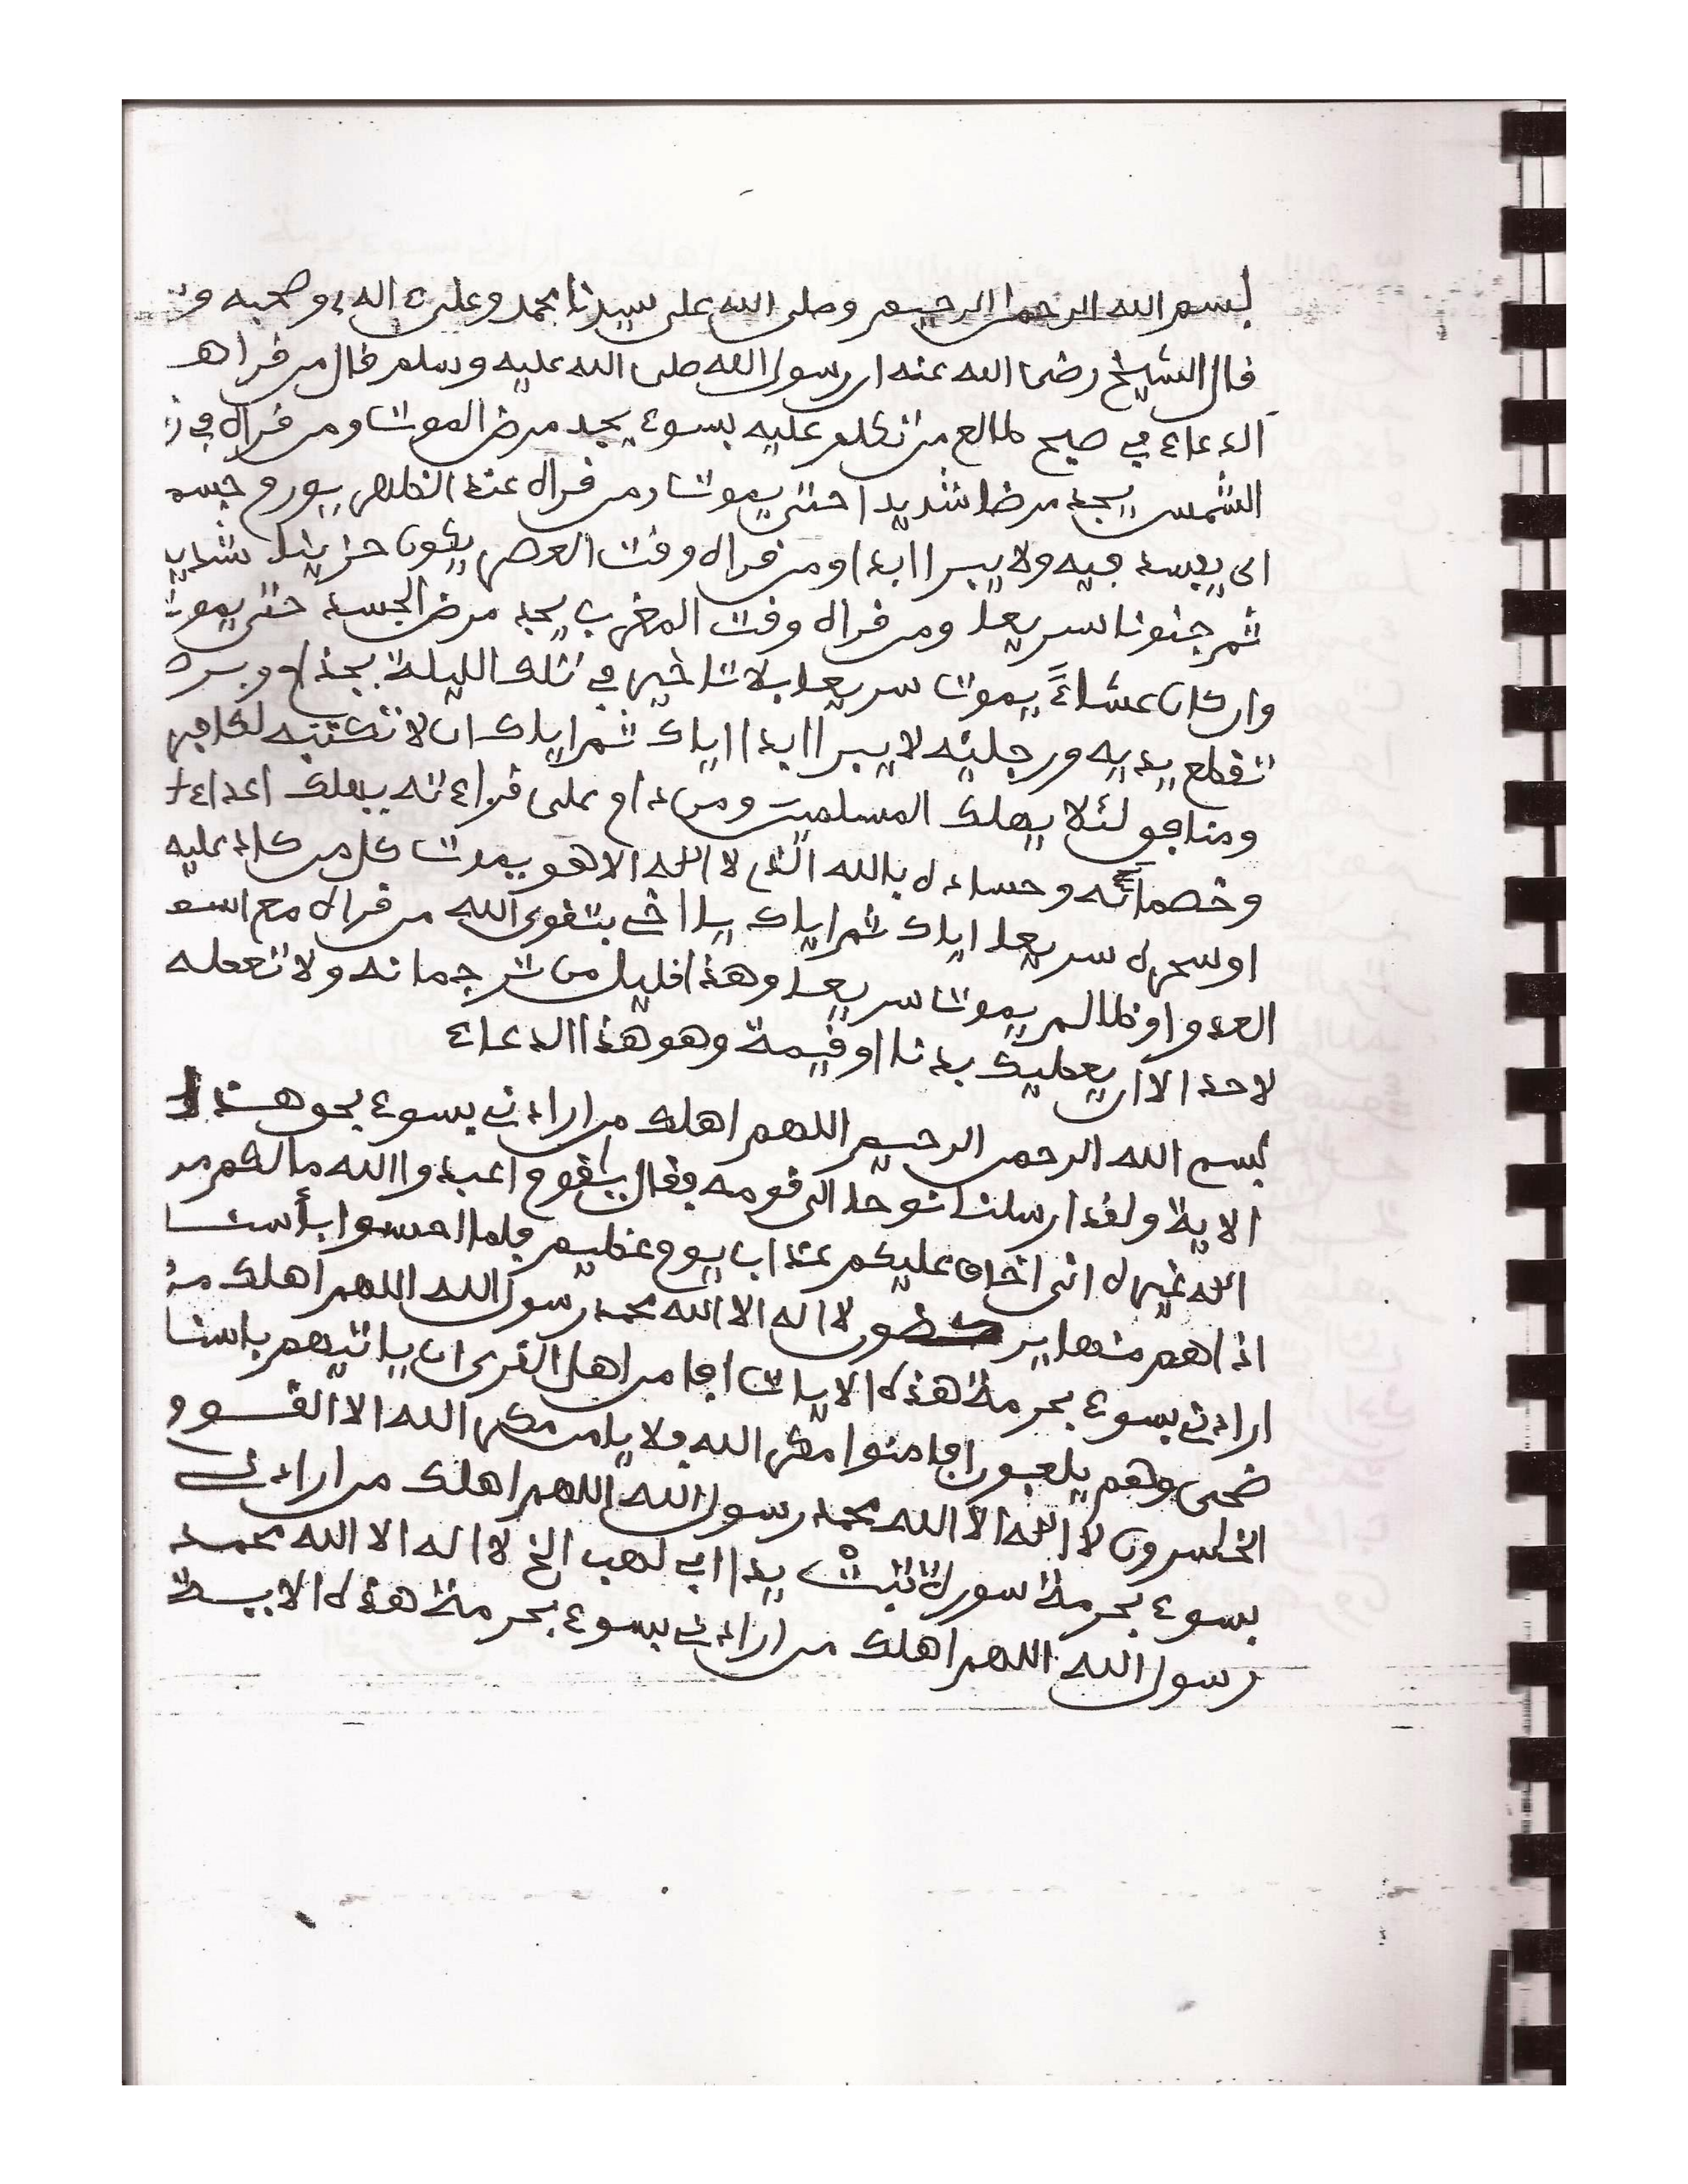 بسم الله الرحمن الرحيم وصلى الله على سيدنا محمد وعلى ءاله وصحبه
قال الشيخ رضى الله عنه ان رسول الله صلى الله عليه وسلم قال من قرا هـ
الدعاء في صبح طالع من تكلم عليه بسوء يجد مرض الموت ومن قراه في
الشمس يجد مرضا شديدا حتى يموت ومن قراه عند الظهر يورم جسد
اى يفسد فيه ولا يبرا ابدا ومن قراه وقت العصر يكون حزينا شديد
ثم جنونا سريعا ومن قراه وقت المغرب يجد مرض الجسد حتى يموت
وان كان عشاءً يموت سريعا بلا تاخير في تلك الليلة بجذام وبرص
تقطع يديه ورجليه لا يبرا ابدا اياك ثم اياك ان لا تكتبه لكافر
ومنافق لئلا يهلك المسلمين ومن دام على قراءته يهلك اعداء
وخصمائه وحساده بالله الذى لا اله الا هو يموت كل من كاد عليه
او سحره سريعا اياك ثم اياك يا اخى بتقوى الله من قراه مع اسم
العدو او ظالم يموت سريعا وهذا قليل من ترجمانه ولا تععله
لاحد الا ان يعطيك بدنا او قيمة وهو هذا الدعاء
بسم الله الرحمن الرحيم اللهم اهلك من ارادنى بسوء بحو هذا
الاية ولقد ارسلنا نوحا الى قومه فقال يقوم اعبدوا الله مالكم من
اله غيره انى اخاف عليكم عذاب يوم عظيم فلما احسوا بأسنا
اذا هم منها ير كضون لا اله الا الله محمد رسول الله اللهم اهلك من
ارادنى بسوء بحرمة هذه الايات افامن اهل القرى ان ياتيهم باسنا
ضحى وهم يلعبون افامنوا مكر الله فلا يامن مكر الله الا القوو
الخاسرون لا اله الا الله محمد رسول الله اللهم اهلك من ارادنى
بسوء بحرمة سورة تبتْ يدا ابى لهب الخ لا اله الا الله محمد
رسول الله اللهم اهلك من ارادنى بسوء بحرمة هذه الاية